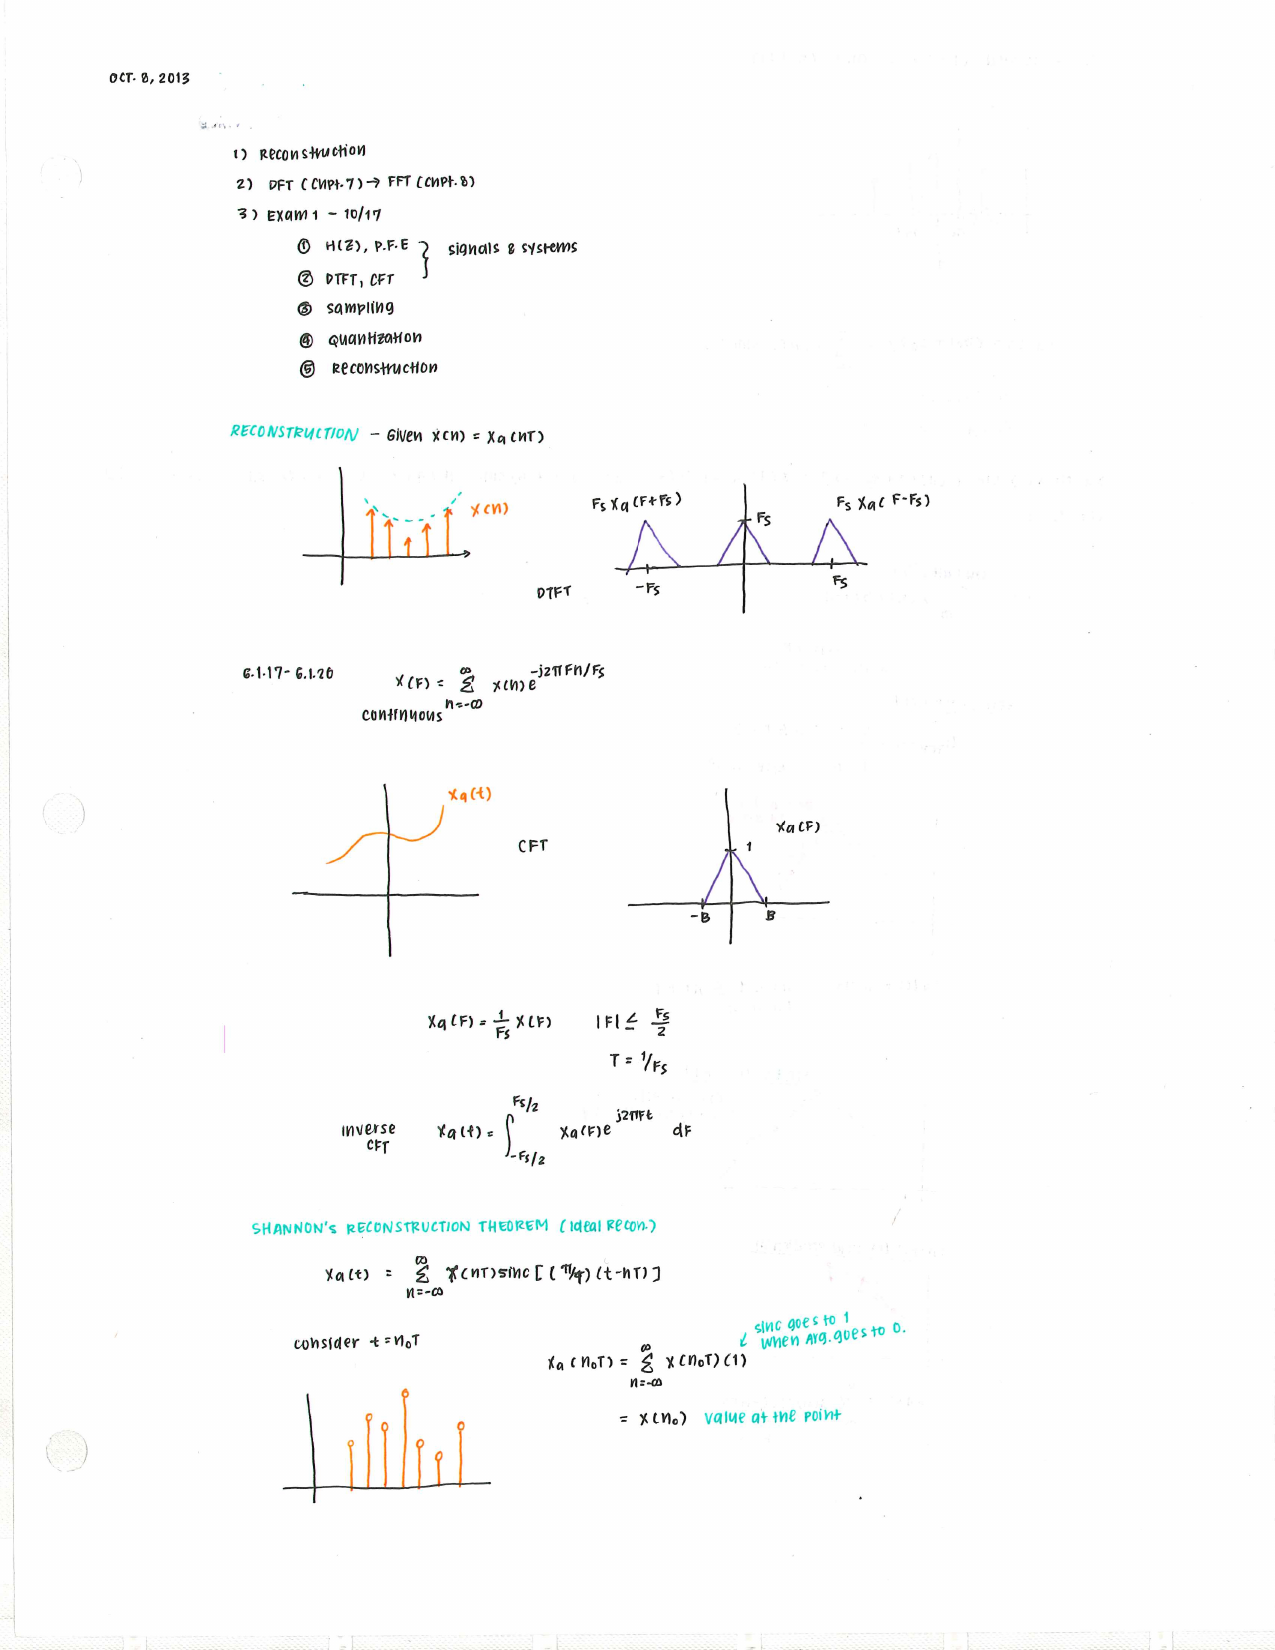 OCT. 8, 2013
1) Reconstruction
2) DFT (Chpt. 7) → FFT (Chpt. 8)
3) Exam 1 - 10/17
① H(z), P.F.E } signals & systems
② DTFT, CFT
③ sampling
④ Quantization
⑤ Reconstruction
RECONSTRUCTION - Given x(n) = Xa(nT)
x(n)
Fs Xa(F+Fs)
Fs
Fs Xa(F-Fs)
DTFT
-Fs
Fs
6.1.17 - 6.1.20
X(F) = ∑ x(n)e^-j2πFn/Fs
∞
n=-∞
continuous
Xa(t)
CFT
Xa(F)
1
-B
B
Xa(F) = 1/Fs X(F) |F| ≤ Fs/2
T = 1/Fs
inverse CFT Xa(t) = ∫ from -Fs/2 to Fs/2 Xa(F)e^j2πFt dF
SHANNON'S RECONSTRUCTION THEOREM (Ideal Recon.)
Xa(t) = ∑ x(nT)sinc[(π/T)(t-nT)]
∞
n=-∞
sinc goes to 1
when Arg. goes to 0.
consider t = n₀T
Xa(n₀T) = ∑ x(n₀T)(1)
∞
n=-∞
= x(n₀) value at the point